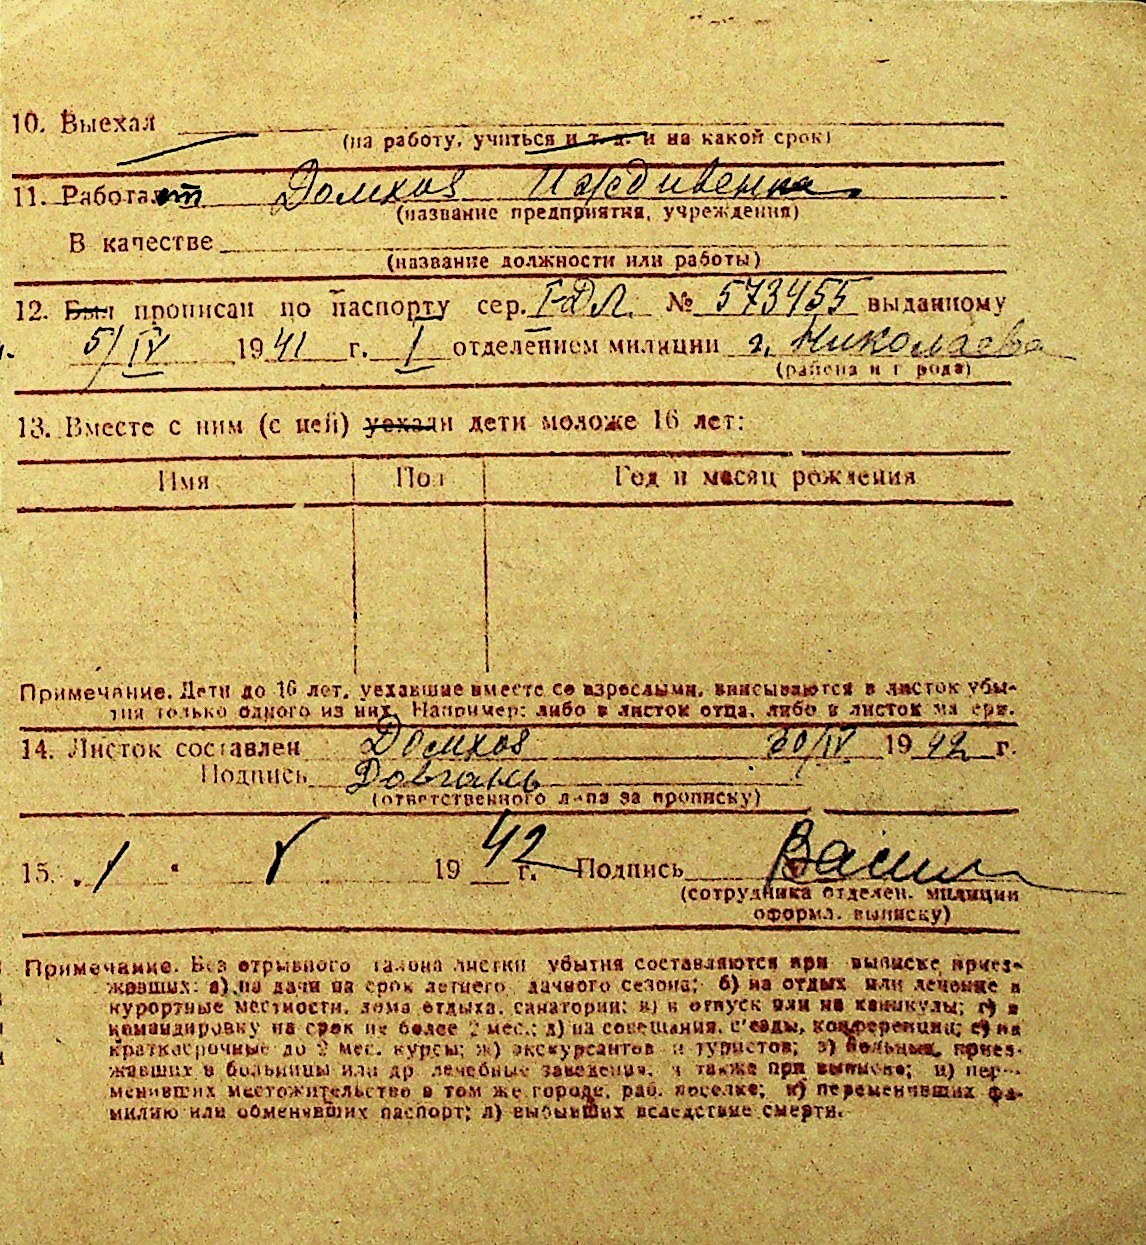 10. Выехал
(на работу, учиться и т. д. и на какой срок)
11. Работает Домхоз Иждивенка
(название предприятия, учреждения)
В качестве
(название должности или работы)
12. Был прописан по паспорту сер. I-ДЛ № 573455 выданному
5/IV 1941 г. I отделением милиции г. Николаева
(района и города)
13. Вместе с ним (с ней) уехали дети моложе 16 лет:
Имя Пол Год и месяц рождения
Примечание. Дети до 16 лет, уехавшие вместе со взрослыми, вписываются в листок убы-
тия только одного из них. Например: либо в листок отца, либо в листок матери.
14. Листок составлен Домхоз 30/IV 1942 г.
Подпись Довгань
(ответственного лица за прописку)
15. „1“ V 1942 г. Подпись
(сотрудника отделен. милиции
оформл. выписку)
Примечание. Без отрывного талона листки убытия составляются при выписке приез-
жавших: а) на дачи на срок летнего дачного сезона; б) на отдых или лечение в
курортные местности, дома отдыха, санатории; в) в отпуск или на каникулы; г) в
командировку на срок не более 2 мес.; д) на совещания, съезды, конференции; е) на
краткосрочные до 2 мес. курсы; ж) экскурсантов и туристов; з) больных, приез-
жавших в больницы или др. лечебные заведения, а также при выписке; и) пере-
менивших местожительство в том же городе, раб. поселке; к) переменивших фа-
милию или обменявших паспорт; л) выбывших вследствие смерти.